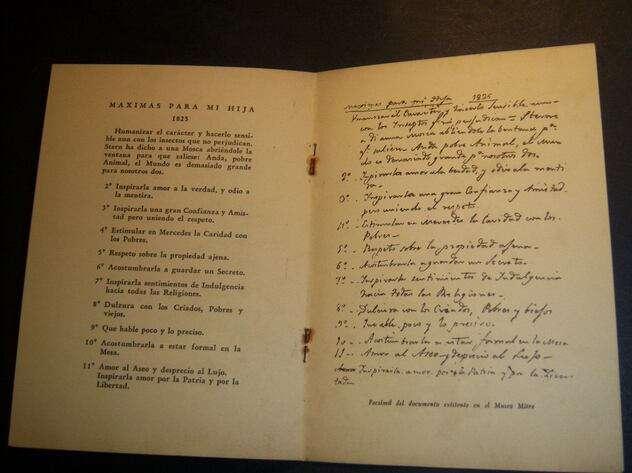 MAXIMAS PARA MI HIJA
1825
Humanizar el carácter y hacerlo sensi-
ble aun con los insectos que no perjudican.
Stern ha dicho a una Mosca abriéndole la
ventana para que saliese: Anda, pobre
Animal, el Mundo es demasiado grande
para nosotros dos.
2º Inspirarla amor a la verdad, y odio a
la mentira.
3º Inspirarla una gran Confianza y Amis-
tad pero uniendo el respeto.
4º Estimular en Mercedes la Caridad con
los Pobres.
5º Respeto sobre la propiedad ajena.
6º Acostumbrarla a guardar un Secreto.
7º Inspirarla sentimientos de Indulgencia
hacia todas las Religiones.
8º Dulzura con los Criados, Pobres y
viejos.
9º Que hable poco y lo preciso.
10º Acostumbrarla a estar formal en la
Mesa.
11º Amor al Aseo y desprecio al Lujo.
Inspirarla amor por la Patria y por la
Libertad.
Maximas para mi Hija 1825
el Caracter y sensible aun
con los Insectos q. no perjudican
a una Mosca abriendole la bentana pª.
q. saliese Anda pobre Animal, el Mun
do es demasiado grande pª nosotros dos.
2º. Inspirarla amor a la berdad, y odio a la menti
ra.
3º. Inspirarla una gran Confianza y Amistad
pero uniendo el respeto.
4º. Estimular en Mercedes la Caridad con los
Pobres.
5º. Respeto sobre la propiedad agena.
6º. Acostumbrarla a guardar un Secreto.
7º. Inspirarla sentimientos de Indulgencia
hacia todas las Religiones.
8º. Dulzura con los Criados, Pobres y biejos
9º. hable poco y lo preciso.
10. Acostumbrarla a estar formal en la Mesa
11. Amor al Aseo y desprecio al Lujo.
Inspirarla amor por la Patria y por la Liver
tad.
Facsímil del documento existente en el Museo Mitre